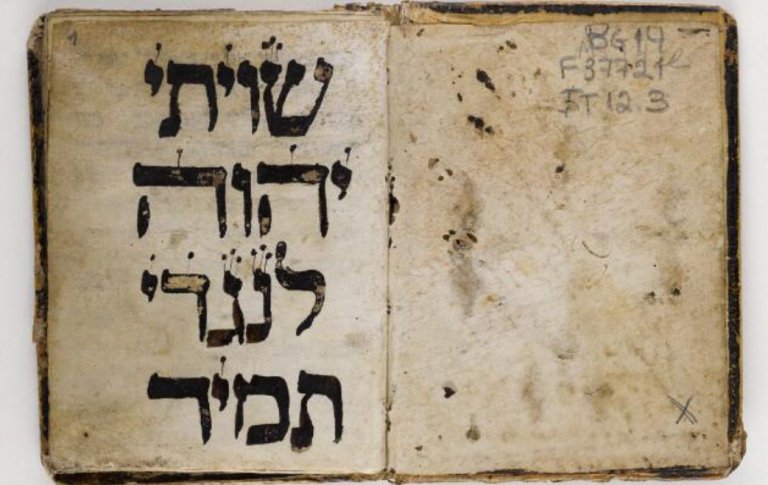 שויתי
יהוה
לנגדי
תמיד
BG 19
F 37721
IT 12.3
X